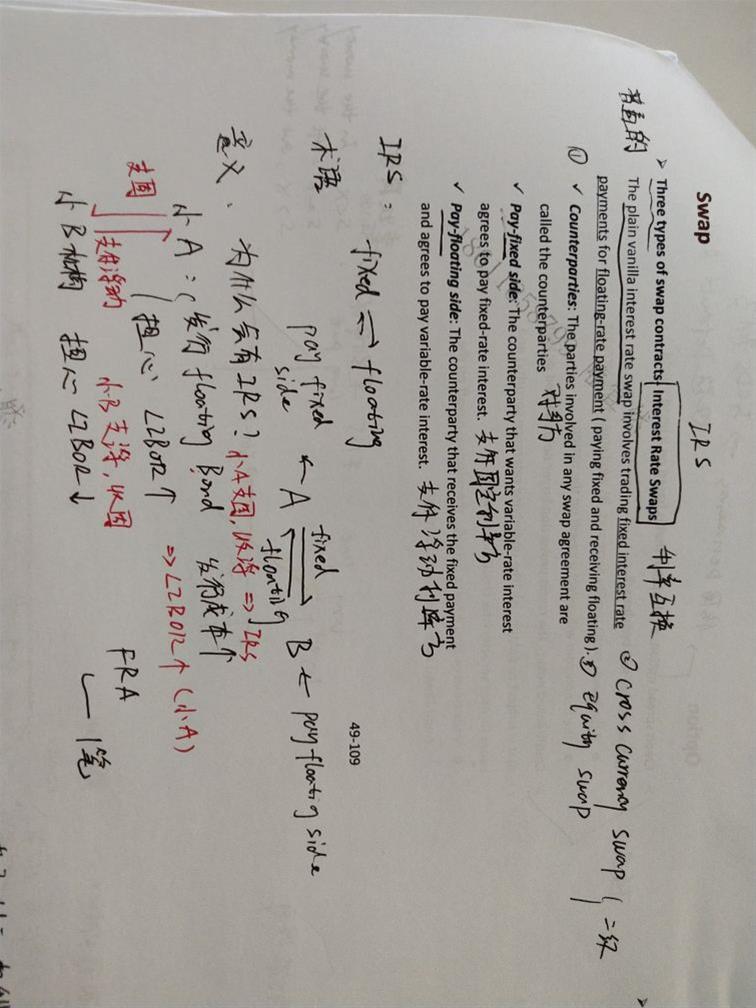 Swap
IRS
➢ Three types of swap contracts: Interest Rate Swaps 利率互换 ② cross currency swap (二级
普通的 The plain vanilla interest rate swap involves trading fixed interest rate
payments for floating-rate payment (paying fixed and receiving floating). ③ equity swap
① ✓ Counterparties: The parties involved in any swap agreement are
called the counterparties 对手方
✓ Pay-fixed side: The counterparty that wants variable-rate interest
agrees to pay fixed-rate interest. 支付固定利率方
✓ Pay-floating side: The counterparty that receives the fixed payment
and agrees to pay variable-rate interest. 支付浮动利率方
49-109
IRS: fixed ⇌ floating
术语 pay fixed side ← A fixed floating B ← pay floating side
意义、为什么会有IRS? 小A支固,收浮 ⇒ IRS
小A: 发行 floating Bond 发行成本个
担心 LIBOR↑ ⇒ LIBOR↑ (小A)
支固
支付浮动 小B支浮,收固 FRA
小B机构 担心 LIBOR↓ 1笔